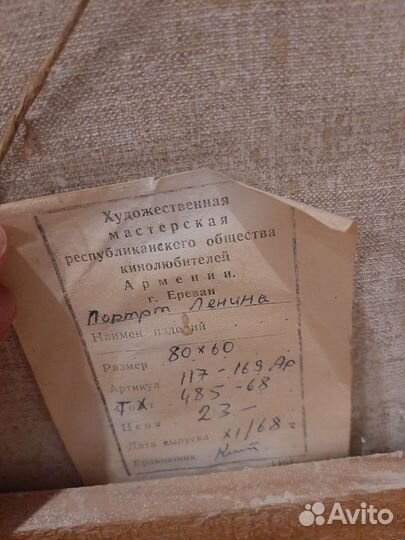 Художественная
мастерская
республиканского общества
кинолюбителей
Армении.
г. Ереван
Портрт Ленина
Наимен изделий
Размер 80×60
Артикул 117-169 Ар
ТХ 485-68
Цена 23.-
Дата выпуска XI/68г
Браковщик
Avito